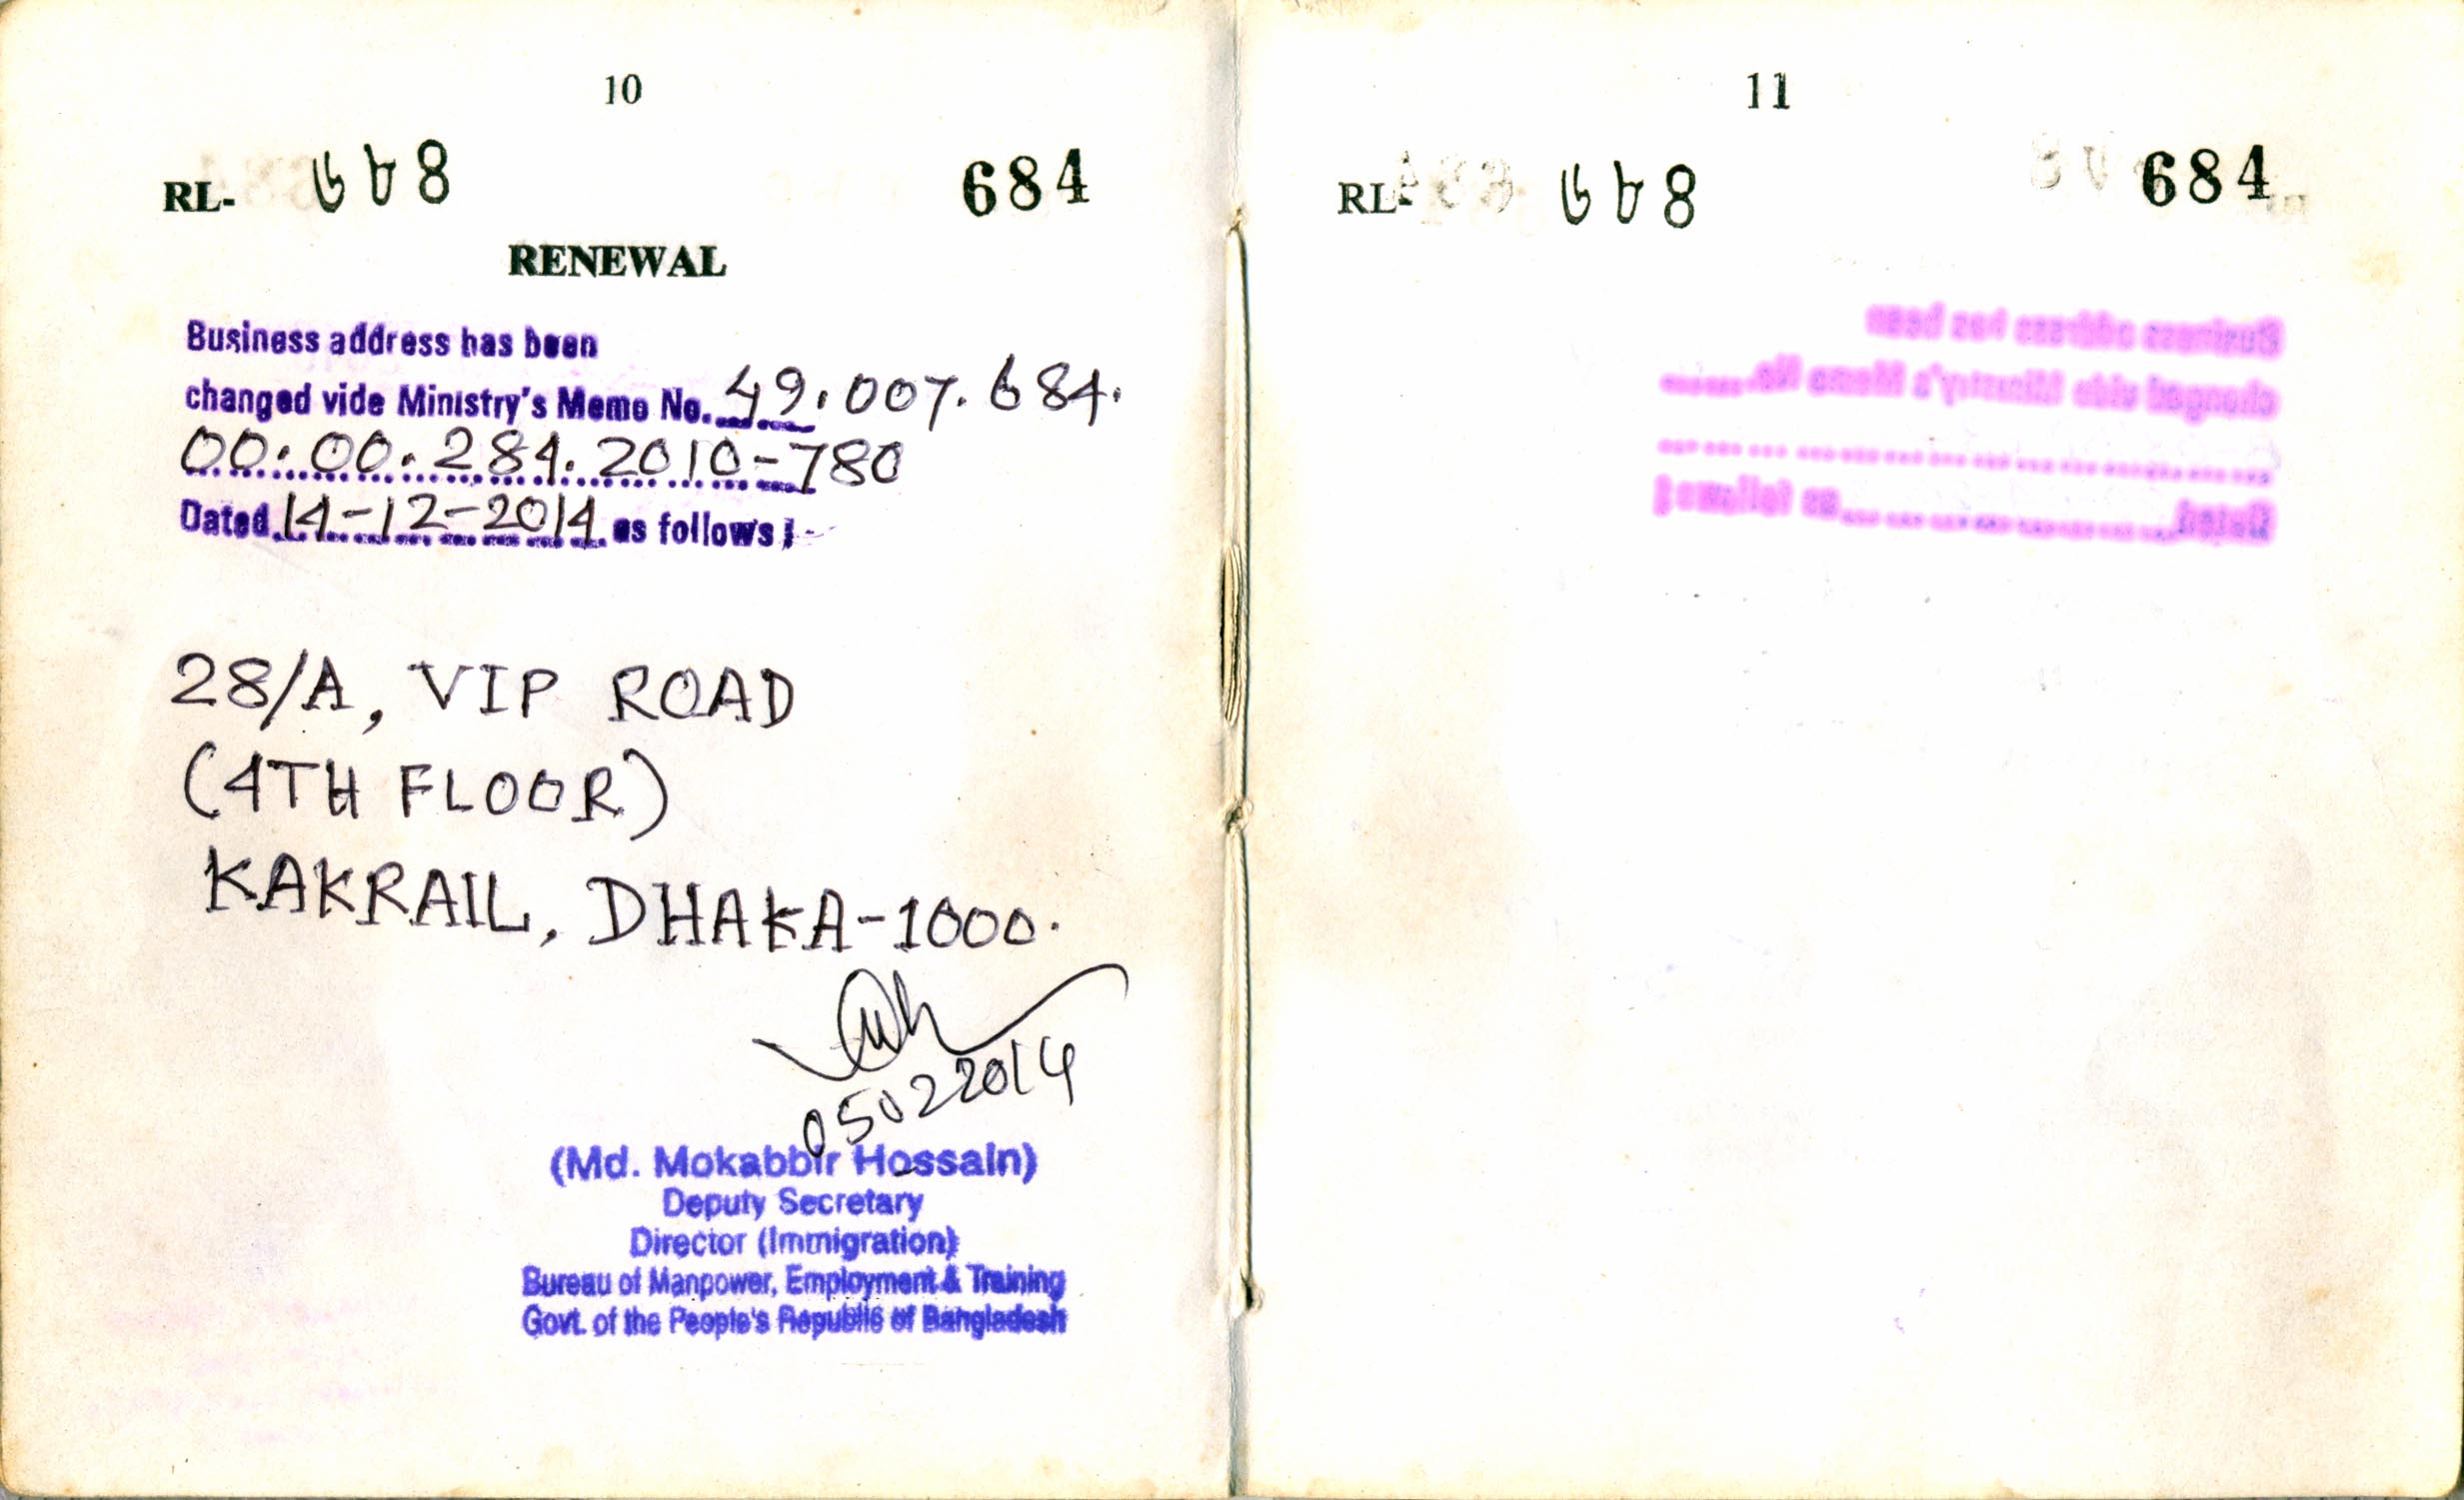 10
RL- ৬৮৪ 684
RENEWAL
Business address has been
changed vide Ministry's Memo No. 49.007.684.
00.00.284.2010-780
Dated 14-12-2014 as follows :-
28/A, VIP ROAD
(4TH FLOOR)
KAKRAIL, DHAKA-1000.
05022014
(Md. Mokabbir Hossain)
Deputy Secretary
Director (Immigration)
Bureau of Manpower, Employment & Training
Govt. of the People's Republic of Bangladesh
11
RL- ৬৮৪ 684